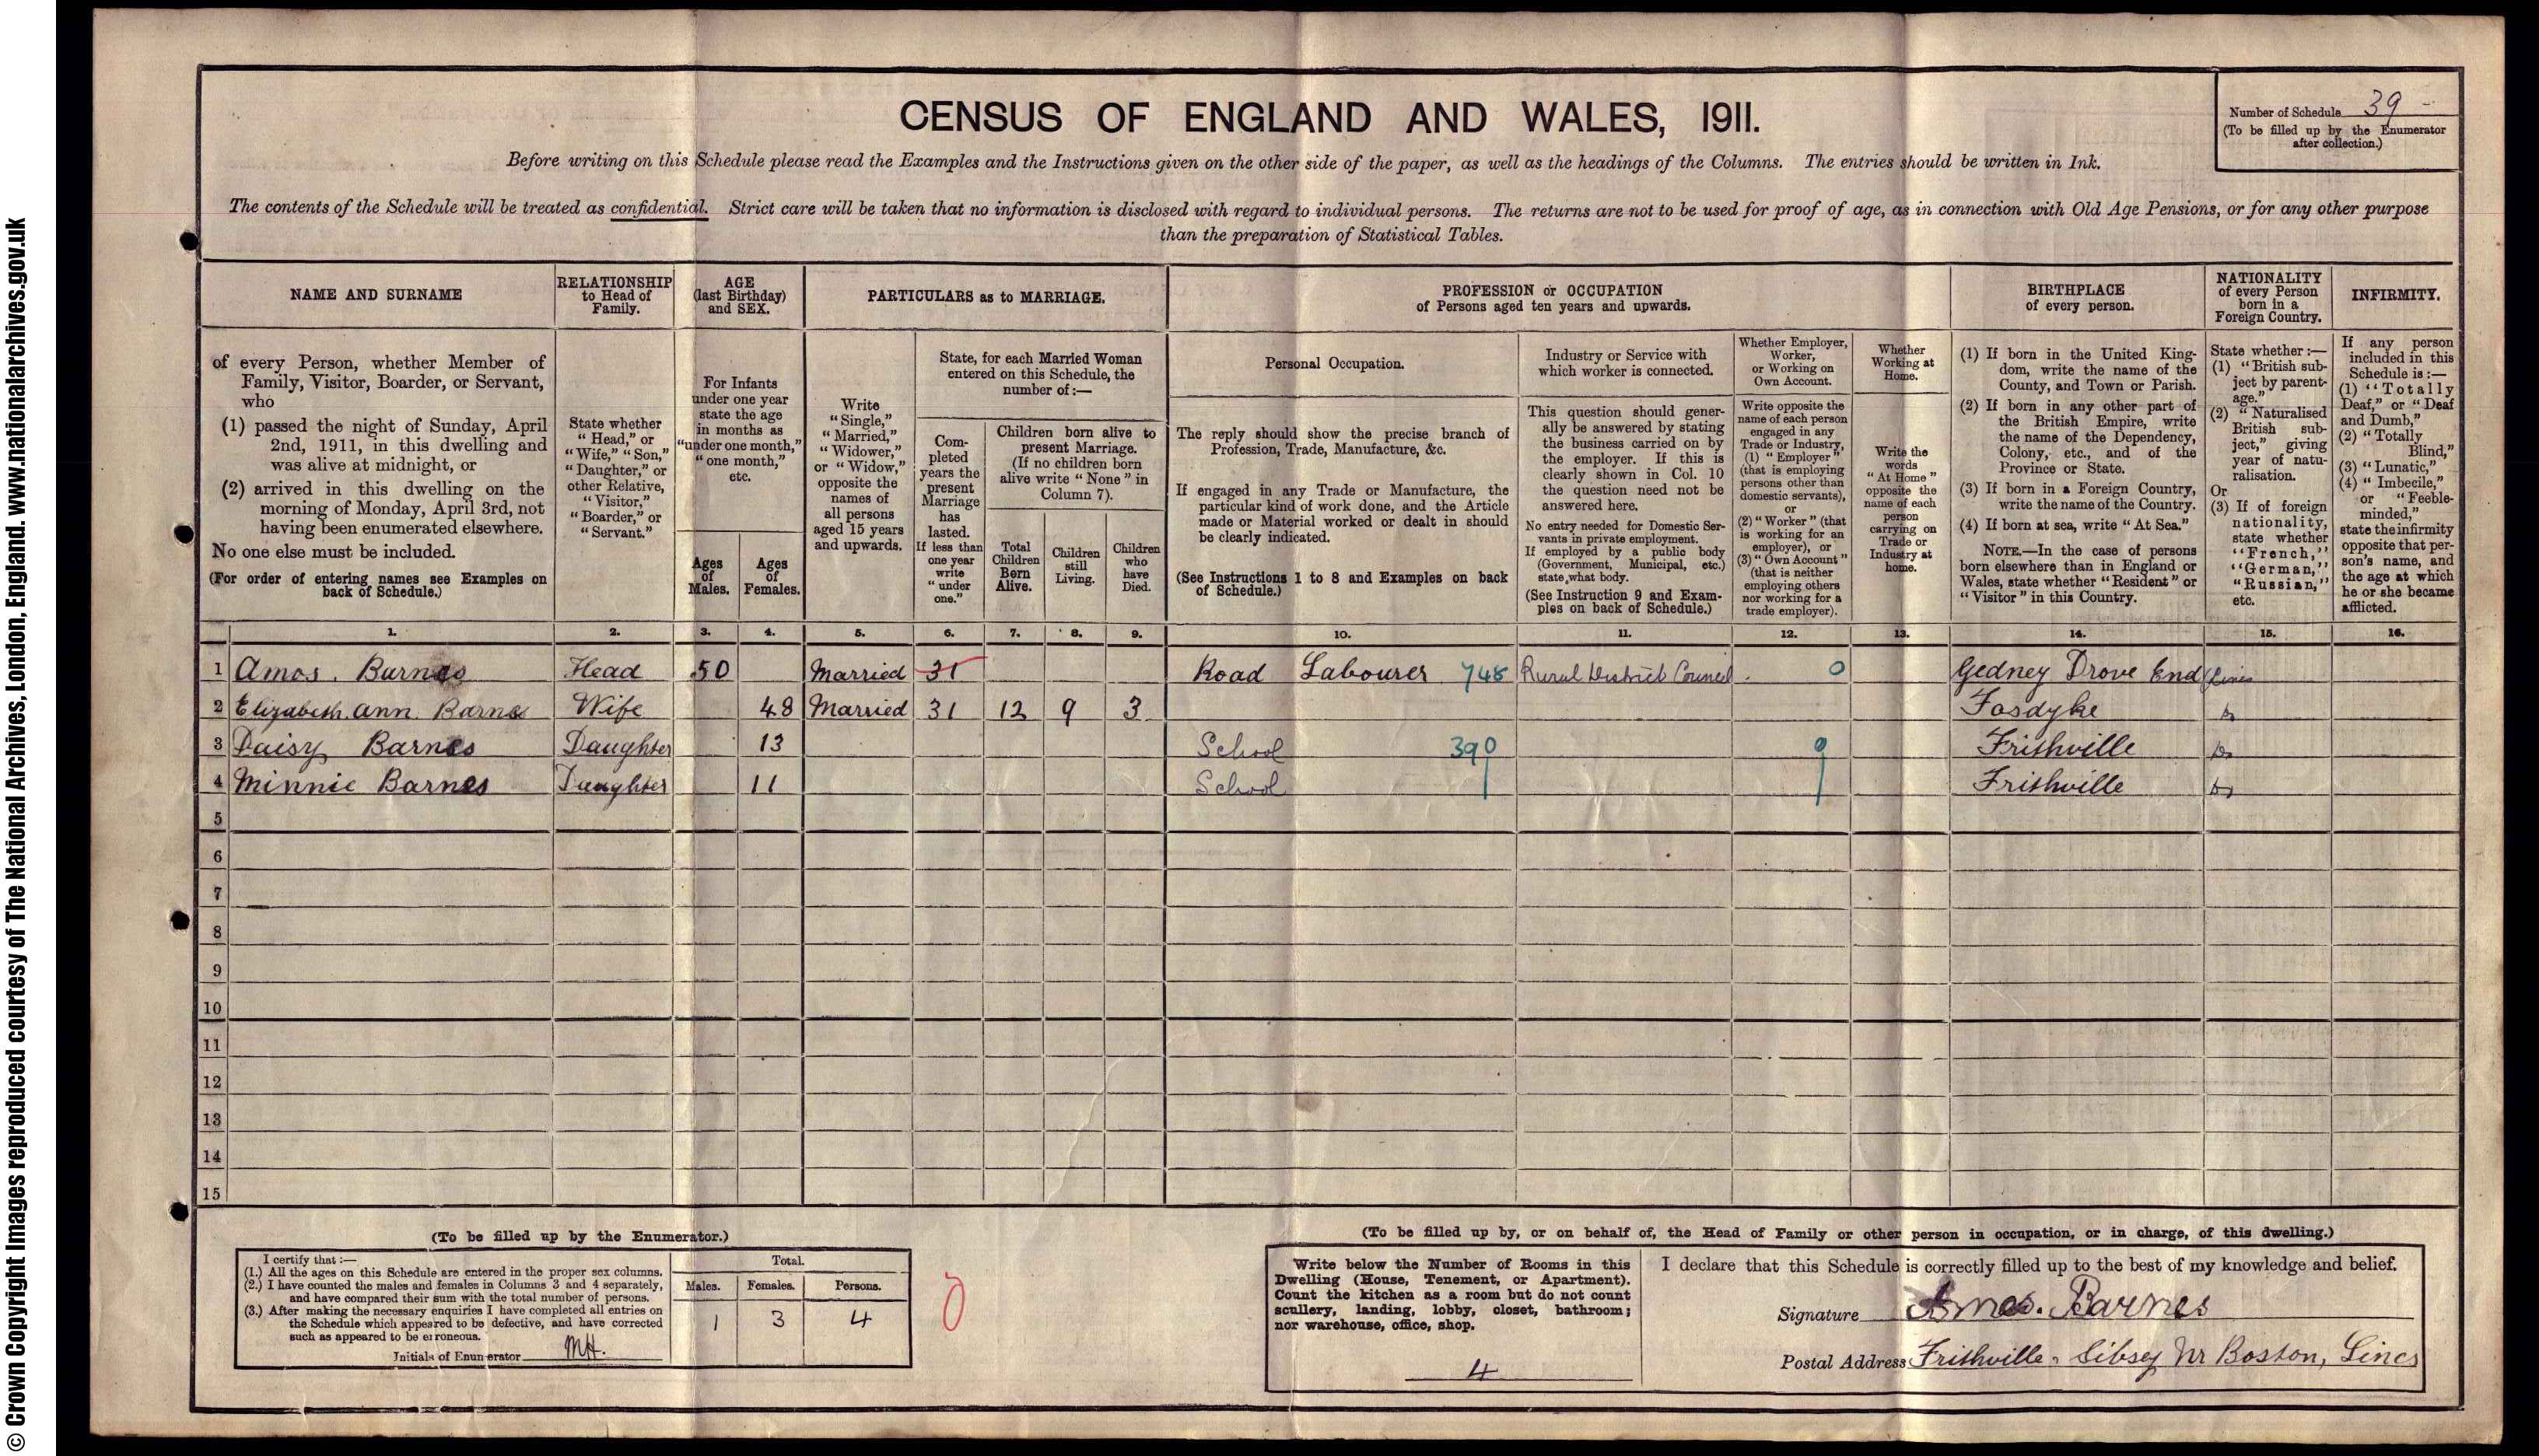 © Crown Copyright Images reproduced courtesy of The National Archives, London, England. www.nationalarchives.gov.uk
CENSUS OF ENGLAND AND WALES, 1911.
Number of Schedule 39
(To be filled up by the Enumerator
after collection.)
Before writing on this Schedule please read the Examples and the Instructions given on the other side of the paper, as well as the headings of the Columns. The entries should be written in Ink.
The contents of the Schedule will be treated as confidential. Strict care will be taken that no information is disclosed with regard to individual persons. The returns are not to be used for proof of age, as in connection with Old Age Pensions, or for any other purpose
than the preparation of Statistical Tables.
NAME AND SURNAME
of every Person, whether Member of
Family, Visitor, Boarder, or Servant,
who
(1) passed the night of Sunday, April
2nd, 1911, in this dwelling and
was alive at midnight, or
(2) arrived in this dwelling on the
morning of Monday, April 3rd, not
having been enumerated elsewhere.
No one else must be included.
(For order of entering names see Examples on
back of Schedule.)
RELATIONSHIP
to Head of
Family.
State whether
"Head," or
"Wife," "Son,"
"Daughter," or
other Relative,
"Visitor,"
"Boarder," or
"Servant."
AGE
(last Birthday)
and SEX.
For Infants
under one year
state the age
in months as
"under one month,"
"one month,"
etc.
Ages
of
Males.
Ages
of
Females.
PARTICULARS as to MARRIAGE.
Write
"Single,"
"Married,"
"Widower,"
or "Widow,"
opposite the
names of
all persons
aged 15 years
and upwards.
State, for each Married Woman
entered on this Schedule, the
number of:—
Com-
pleted
years the
present
Marriage
has
lasted.
If less than
one year
write
"under
one."
Children born alive to
present Marriage.
(If no children born
alive write "None" in
Column 7).
Total
Children
Born
Alive.
Children
still
Living.
Children
who
have
Died.
PROFESSION or OCCUPATION
of Persons aged ten years and upwards.
Personal Occupation.
The reply should show the precise branch of
Profession, Trade, Manufacture, &c.
If engaged in any Trade or Manufacture, the
particular kind of work done, and the Article
made or Material worked or dealt in should
be clearly indicated.
(See Instructions 1 to 8 and Examples on back
of Schedule.)
Industry or Service with
which worker is connected.
This question should gener-
ally be answered by stating
the business carried on by
the employer. If this is
clearly shown in Col. 10
the question need not be
answered here.
No entry needed for Domestic Ser-
vants in private employment.
If employed by a public body
(Government, Municipal, etc.)
state what body.
(See Instruction 9 and Exam-
ples on back of Schedule.)
Whether Employer,
Worker,
or Working on
Own Account.
Write opposite the
name of each person
engaged in any
Trade or Industry,
(1) "Employer"
(that is employing
persons other than
domestic servants),
or
(2) "Worker" (that
is working for an
employer), or
(3) "Own Account"
(that is neither
employing others
nor working for a
trade employer).
Whether
Working at
Home.
Write the
words
"At Home"
opposite the
name of each
person
carrying on
Trade or
Industry at
home.
BIRTHPLACE
of every person.
(1) If born in the United King-
dom, write the name of the
County, and Town or Parish.
(2) If born in any other part of
the British Empire, write
the name of the Dependency,
Colony, etc., and of the
Province or State.
(3) If born in a Foreign Country,
write the name of the Country.
(4) If born at sea, write "At Sea."
NOTE.—In the case of persons
born elsewhere than in England or
Wales, state whether "Resident" or
"Visitor" in this Country.
NATIONALITY
of every Person
born in a
Foreign Country.
State whether:—
(1) "British sub-
ject by parent-
age."
(2) "Naturalised
British sub-
ject," giving
year of natu-
ralisation.
Or
(3) If of foreign
nationality,
state whether
"French,"
"German,"
"Russian,"
etc.
INFIRMITY.
If any person
included in this
Schedule is:—
(1) "Totally
Deaf," or "Deaf
and Dumb,"
(2) "Totally
Blind,"
(3) "Lunatic,"
(4) "Imbecile,"
or "Feeble-
minded,"
state the infirmity
opposite that per-
son's name, and
the age at which
he or she became
afflicted.
1. 2. 3. 4. 5. 6. 7. 8. 9. 10. 11. 12. 13. 14. 15. 16.
1 Amos. Barnes Head 50 Married 31 Road Labourer 748 Rural District Council 0 Gedney Drove End Lincs
2 Elizabeth ann Barnes Wife 48 Married 31 12 9 3 Fosdyke Do
3 Daisy Barnes Daughter 13 School 390 0 Frithville Do
4 Minnie Barnes Daughter 11 School Frithville Do
5
6
7
8
9
10
11
12
13
14
15
(To be filled up by the Enumerator.)
I certify that:—
(1.) All the ages on this Schedule are entered in the proper sex columns.
(2.) I have counted the males and females in Columns 3 and 4 separately,
and have compared their sum with the total number of persons.
(3.) After making the necessary enquiries I have completed all entries on
the Schedule which appeared to be defective, and have corrected
such as appeared to be erroneous.
Initials of Enumerator MH.
Total.
Males. Females. Persons.
1 3 4
0
(To be filled up by, or on behalf of, the Head of Family or other person in occupation, or in charge, of this dwelling.)
Write below the Number of Rooms in this
Dwelling (House, Tenement, or Apartment).
Count the kitchen as a room but do not count
scullery, landing, lobby, closet, bathroom;
nor warehouse, office, shop.
4
I declare that this Schedule is correctly filled up to the best of my knowledge and belief.
Signature Amos. Barnes
Postal Address Frithville, Sibsey Nr Boston, Lincs